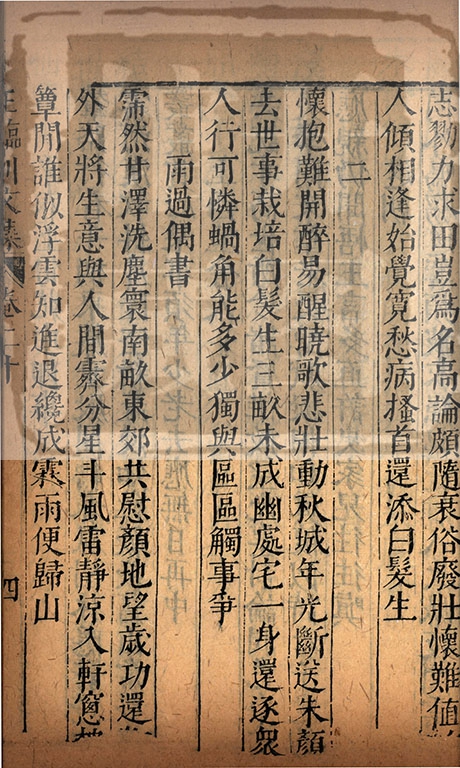 志勠力求田豈爲名高論頗隨衰俗廢壯懷難值
人傾相逢始覺寬愁病搔首還添白髮生
二
懷抱難開醉易醒曉歌悲壯動秋城年光斷送朱顏
去世事栽培白髮生三畝未成幽處宅一身還逐眾
人行可憐蝸角能多少獨與區區觸事爭
雨過偶書
霈然甘澤洗塵寰南畝東郊共慰顏地望歲功還
外天將生意與人間霽分星斗風雷靜涼入軒窻枕
簟閒誰似浮雲知進退纔成霖雨便歸山
王臨川文集 卷二十 四